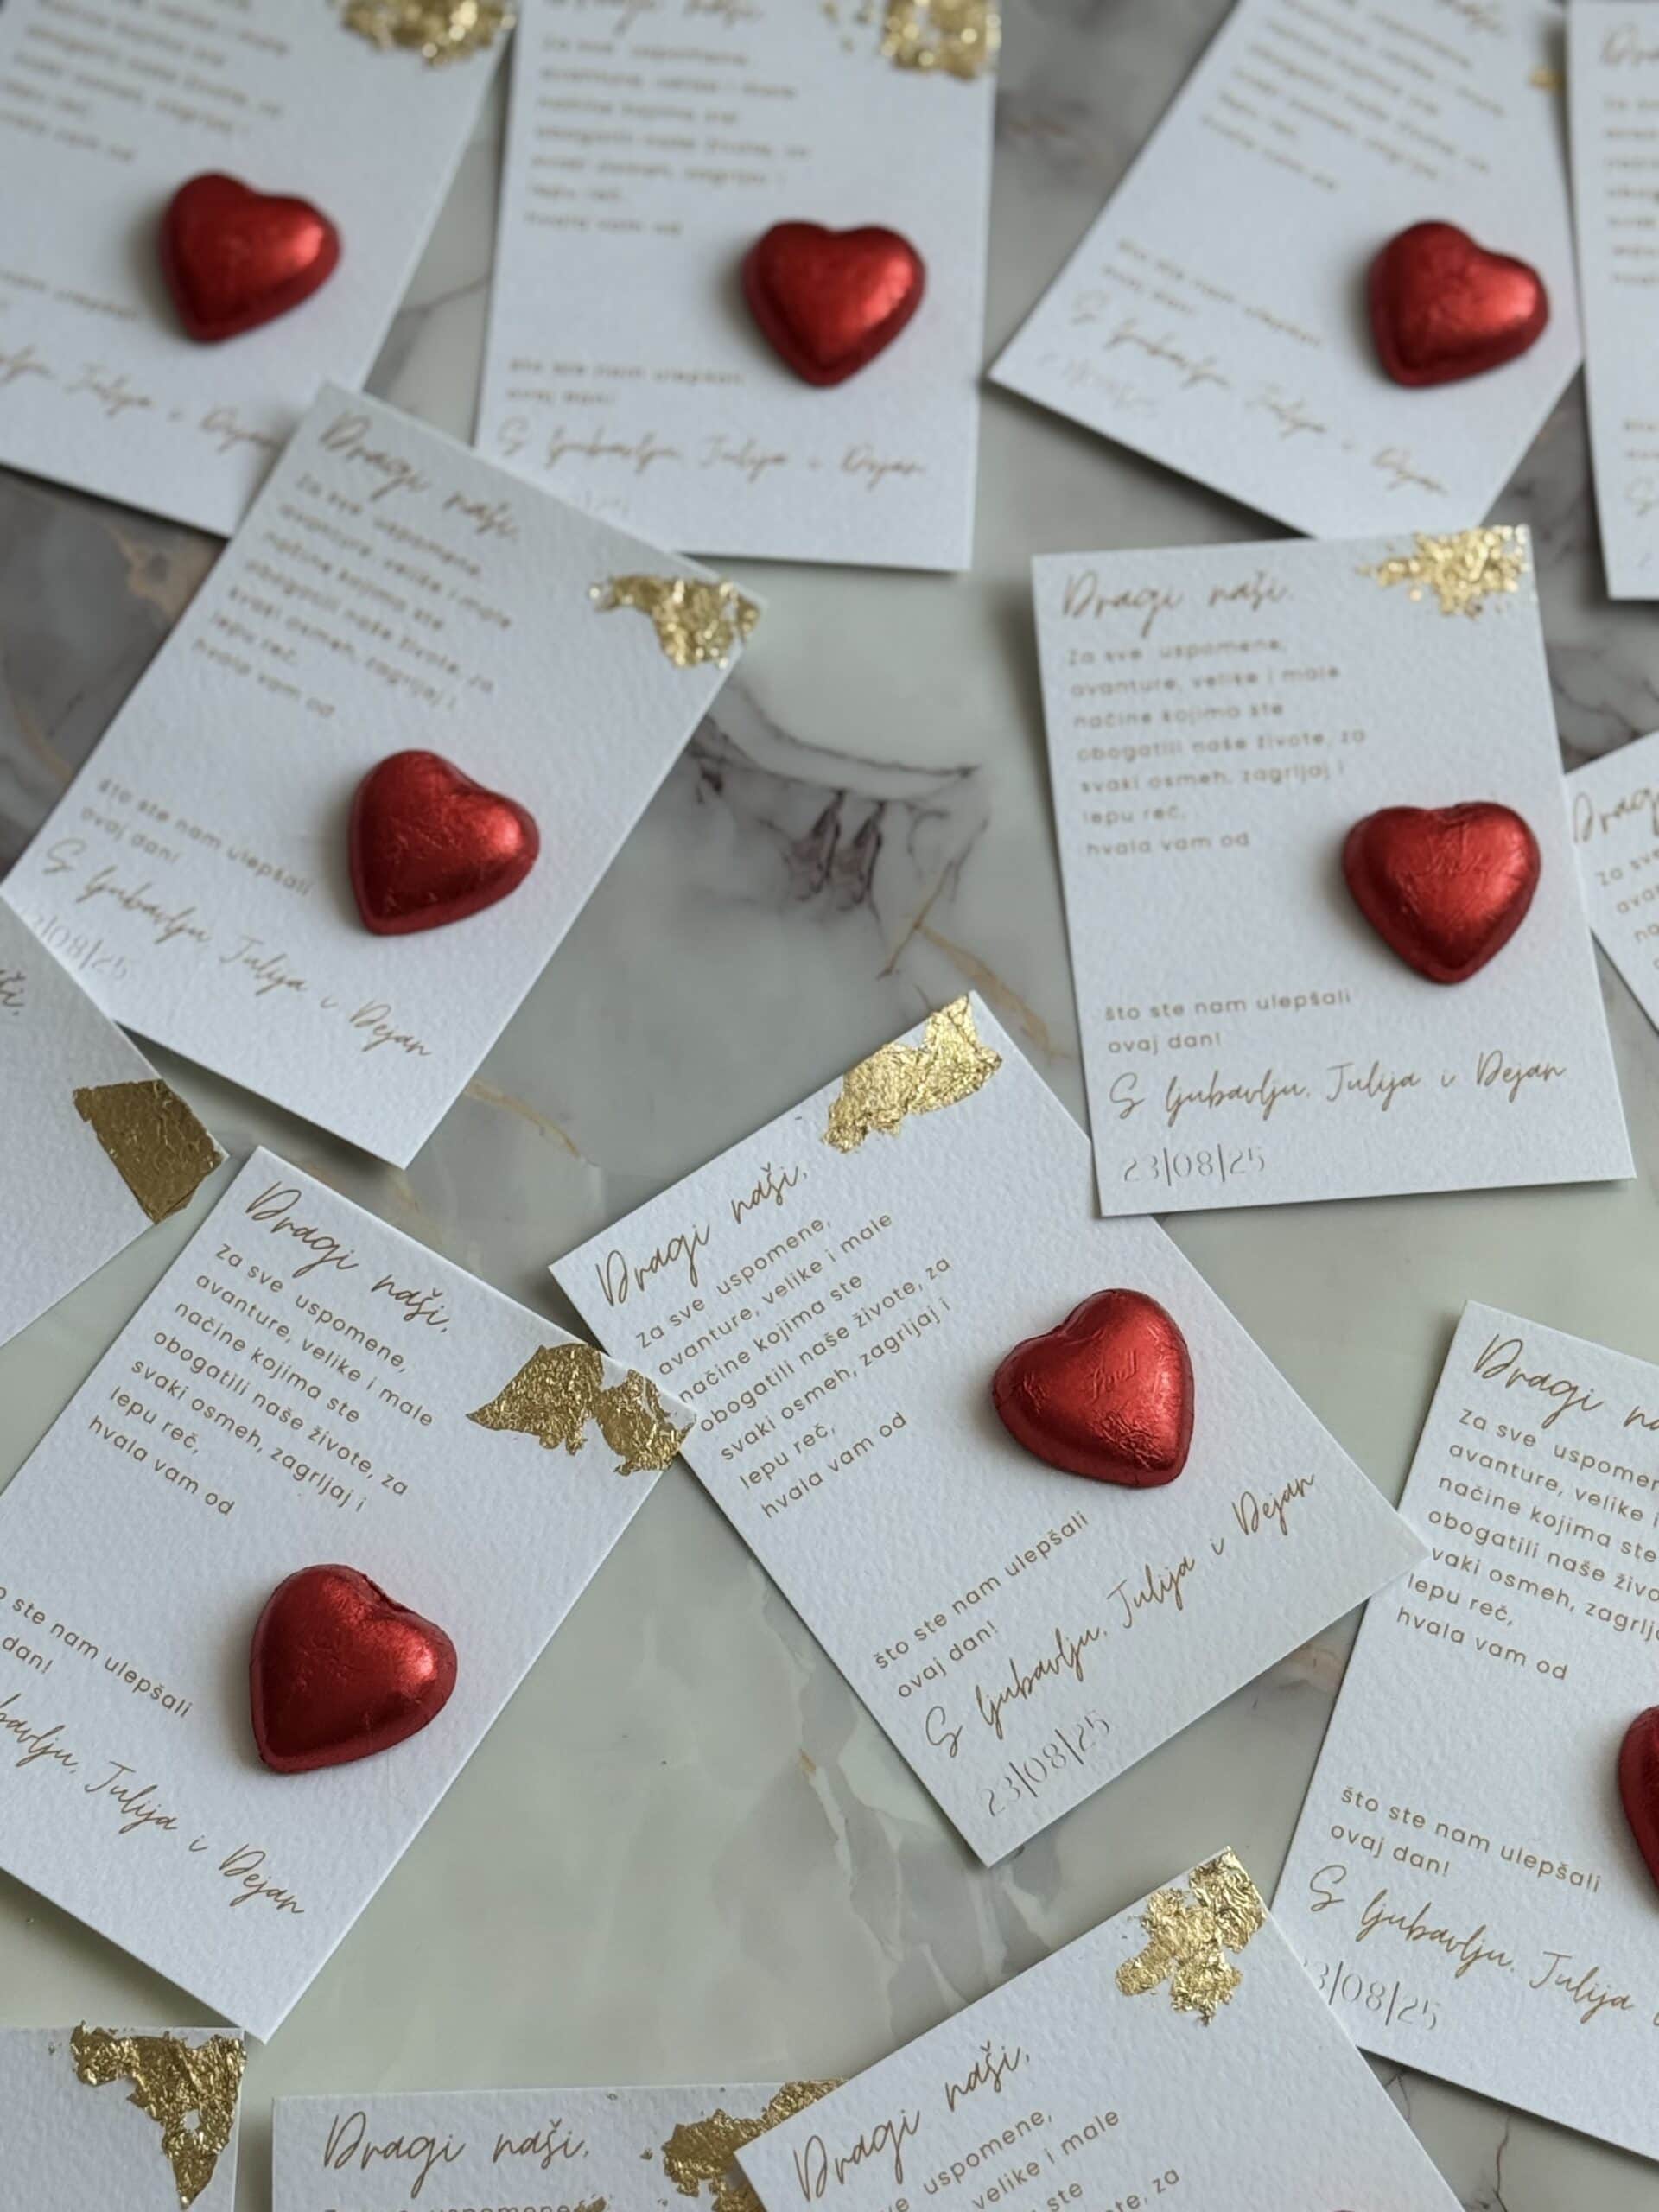 Dragi naši,
Za sve uspomene,
avanture, velike i male
načine kojima ste
obogatili naše živote, za
svaki osmeh, zagrljaj i
lepu reč,
hvala vam od
što ste nam ulepšali
ovaj dan!
S ljubavlju, Julija i Dejan
Dragi naši,
Za sve uspomene,
avanture, velike i male
načine kojima ste
obogatili naše živote, za
svaki osmeh, zagrljaj i
lepu reč,
hvala vam od
što ste nam ulepšali
ovaj dan!
S ljubavlju, Julija i Dejan
/08/25
Dragi naši,
Za sve uspomene,
avanture, velike i male
načine kojima ste
obogatili naše živote, za
svaki osmeh, zagrljaj i
lepu reč,
hvala vam od
što ste nam ulepšali
ovaj dan!
S ljubavlju, Julija i Dejan
23|08|25
Dragi naši,
za sve uspomene,
avanture, velike i male
načine kojima ste
obogatili naše živote, za
svaki osmeh, zagrljaj i
lepu reč,
hvala vam od
ste nam ulepšali
dan!
Julija i Dejan
Dragi naši,
za sve uspomene,
avanture, velike i male
načine kojima ste
obogatili naše živote, za
svaki osmeh, zagrljaj i
lepu reč,
hvala vam od
što ste nam ulepšali
ovaj dan!
S ljubavlju, Julija i Dejan
23|08|25
Dragi
za sve
avanture, velike
načine kojima ste
obogatili naše
osmeh,
lepu reč,
hvala vam od
što ste nam ulepšali
ovaj dan!
S ljubavlju, Julija
|08|25
Dragi naši,
Dragi naši,
uspomene,
velike i male
ste
za